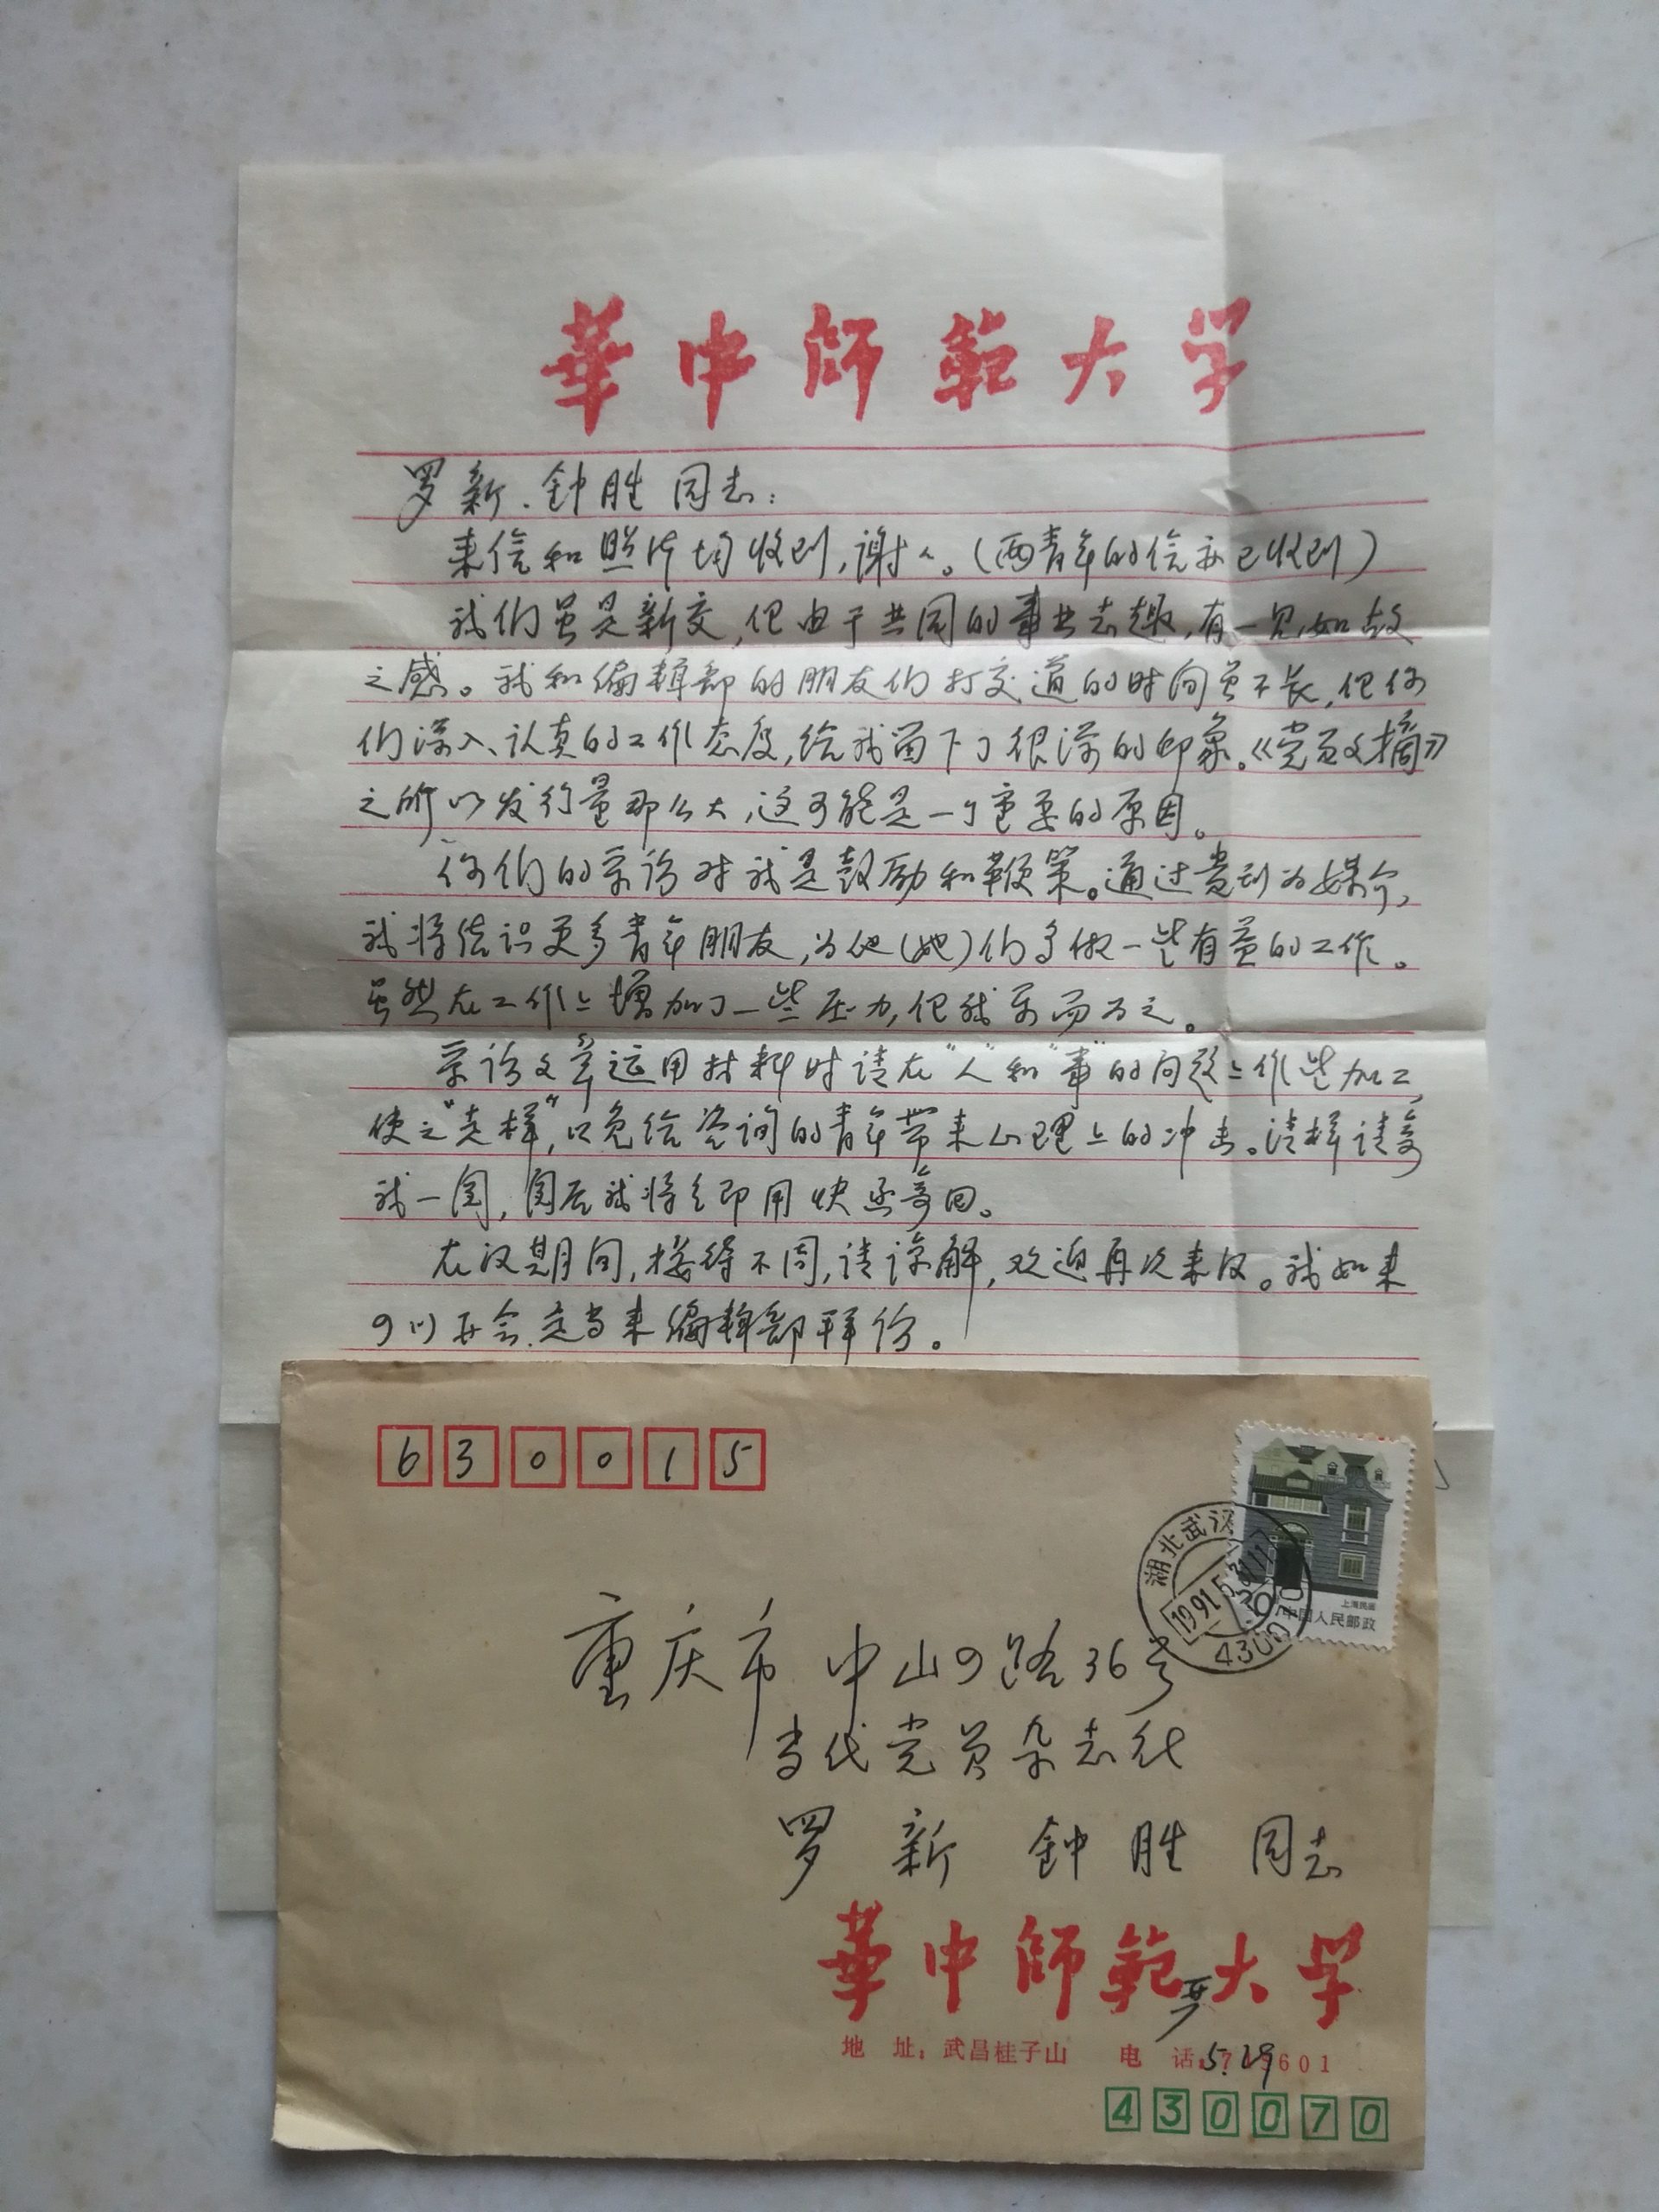 華中师範大学
罗新、钟胜同志：
来信和照片均收到，谢々。（两青年的信亦已收到）
我们虽是新交，但由于共同的事业志趣，有一见如故
之感。我和编辑部的朋友们打交道的时间虽不长，但你
们深入、认真的工作态度，给我留下了很深的印象。《党员文摘》
之所以发行量那么大，这可能是一个重要的原因。
你们的采访对我是鼓励和鞭策。通过贵刊为媒介，
我将结识更多青年朋友，为他（她）们多做一些有益的工作。
虽然在工作上增加了一些压力，但我乐而为之。
采访文章运用材料时请在“人”和“事”的问题上作些加工，
使之“走样”，以免给咨询的青年带来心理上的冲击。清样请寄
我一阅，阅后我将立即用快函寄回。
在汉期间，接待不周，请谅解，欢迎再次来汉。我如来
四川开会，定当来编辑部拜访。
630015
湖北武汉
1991.5
4300
上海民居
中国人民邮政
重庆市中山四路36号
当代党员杂志社
罗新 钟胜 同志
華中师範大学
地 址：武昌桂子山 电 话：601
5.29
430070